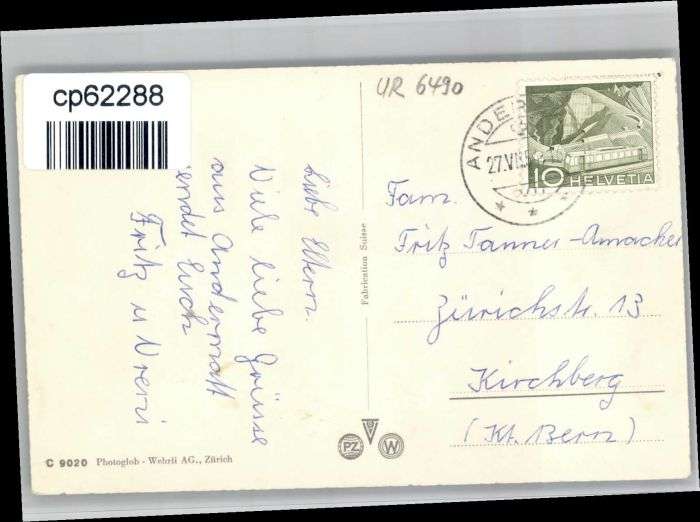 cp62288
UR 6490
ANDER
27.VII.5
10 HELVETIA
Liebe Eltern.
Viele liebe Grüsse
aus Andermatt
sendet Euch
Fritz u Vreni
Fabrication Suisse
Fam.
Fritz Tanner-Amacher
Zürichstr. 13
Kirchberg
(Kt. Bern)
PZ W
C 9020 Photoglob - Wehrli AG., Zürich